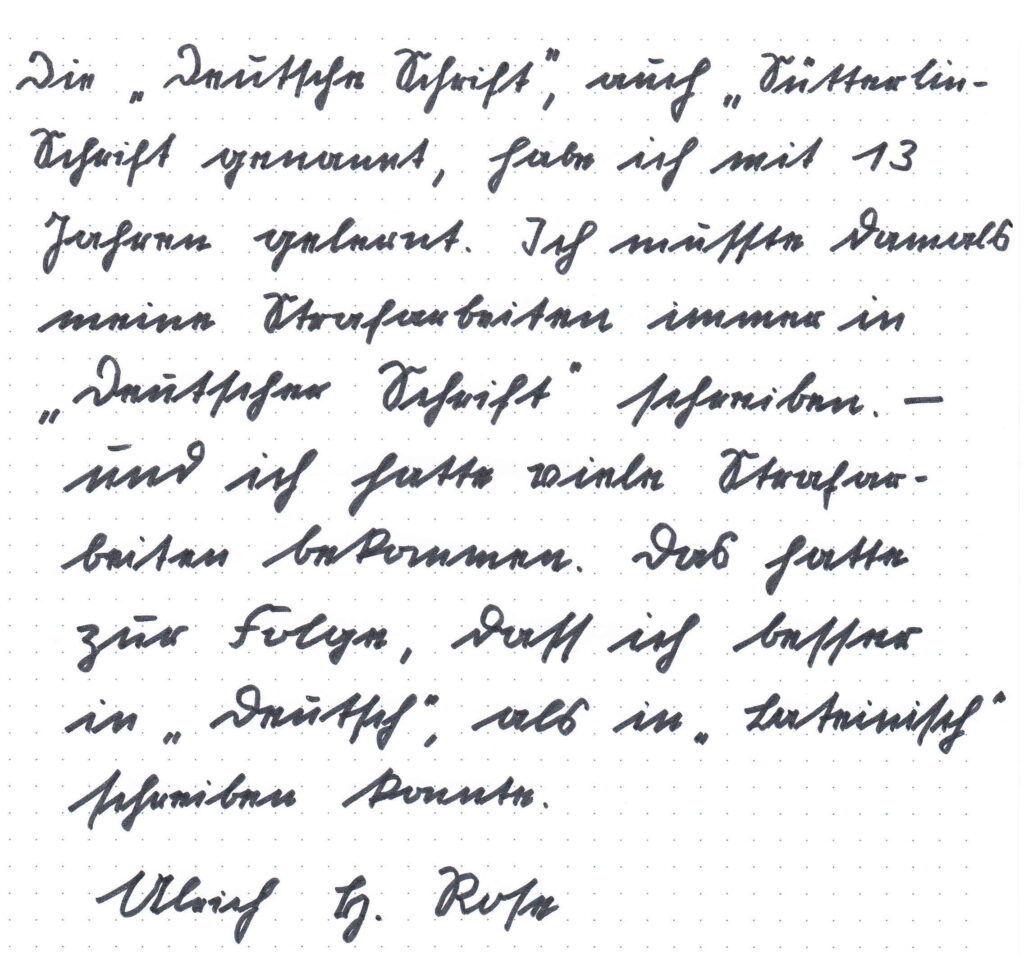 Die „Deutsche Schrift“, auch „Sütterlin-
Schrift genannt, habe ich mit 13
Jahren gelernt. Ich musste damals
meine Strafarbeiten immer in
„Deutscher Schrift“ schreiben. –
und ich hatte viele Strafar-
beiten bekommen. Das hatte
zur Folge, dass ich besser
in „Deutsch“, als in „Lateinisch“
schreiben konnte.
Ulrich H. Rose